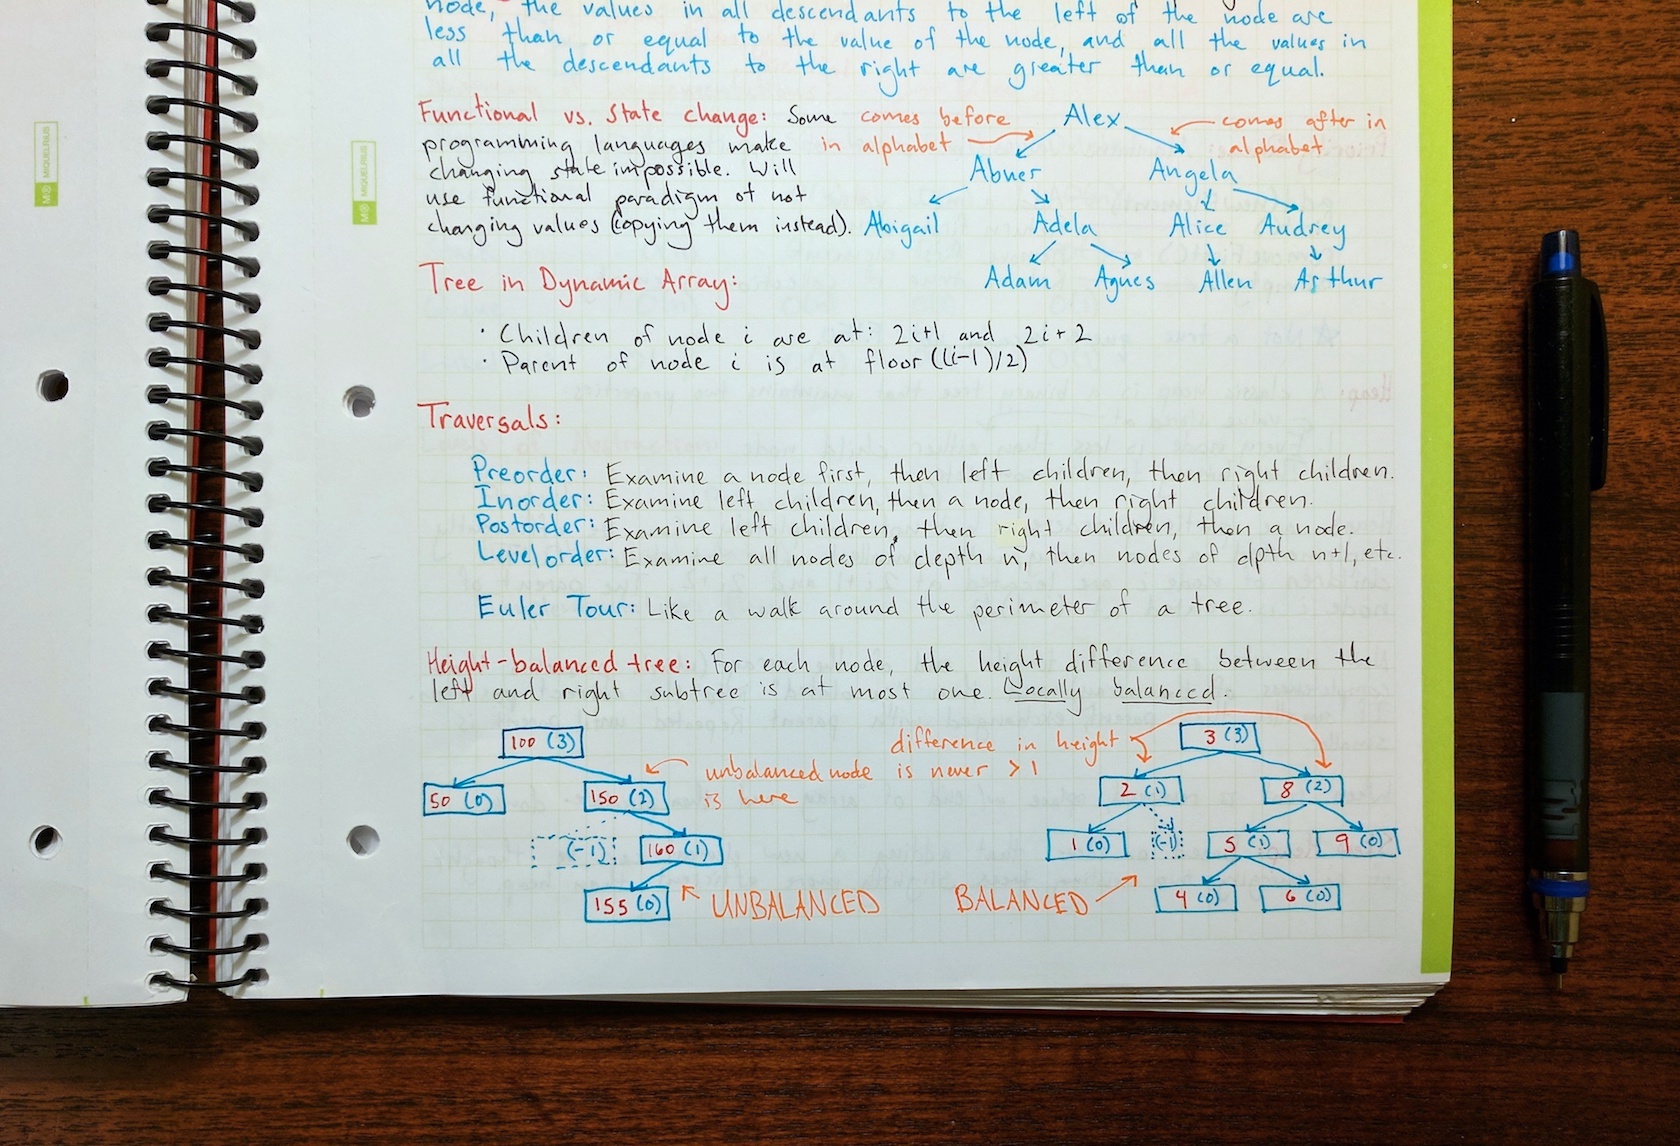 node, the values in all descendants to the left of the node are
less than or equal to the value of the node, and all the values in
all the descendants to the right are greater than or equal.
Functional vs. State change: Some
programming languages make
changing state impossible. Will
use functional paradigm of not
changing values (copying them instead).
comes before
in alphabet
Alex
comes after in
alphabet
Abner Angela
Abigail Adela Alice Audrey
Adam Agnes Allen Arthur
Tree in Dynamic Array:
· Children of node i are at: 2i+1 and 2i+2
· Parent of node i is at floor((i-1)/2)
Traversals:
Preorder: Examine a node first, then left children, then right children.
Inorder: Examine left children, then a node, then right children.
Postorder: Examine left children, then right children, then a node.
Levelorder: Examine all nodes of depth n, then nodes of dpth n+1, etc.
Euler Tour: Like a walk around the perimeter of a tree.
Height-balanced tree: For each node, the height difference between the
left and right subtree is at most one. Locally balanced.
100 (3)
50 (0) 150 (2)
(-1) 160 (1)
155 (0)
unbalanced node
is here
UNBALANCED
difference in height
is never >1
3 (3)
2 (1) 8 (2)
1 (0) (-1) 5 (1) 9 (0)
4 (0) 6 (0)
BALANCED
MIQUELRIUS
MIQUELRIUS